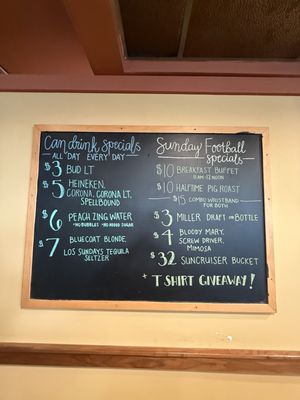 Can drink specials
ALL DAY EVERY DAY
$3 BUD LT
$5 HEINEKEN,
CORONA, CORONA LT,
SPELLBOUND
$6 PEACH ZING WATER
•NO BUBBLES •NO ADDED SUGAR
$7 BLUECOAT BLONDE,
LOS SUNDAYS TEQUILA
SELTZER
Sunday Football
specials
$10 BREAKFAST BUFFET
11AM-12NOON
$10 HALFTIME PIG ROAST
$15 COMBO WRISTBAND
FOR BOTH
$3 MILLER DRAFT OR BOTTLE
$4 BLOODY MARY,
SCREW DRIVER,
MIMOSA
$32 SUNCRUISER BUCKET
+ T SHIRT GIVEAWAY!